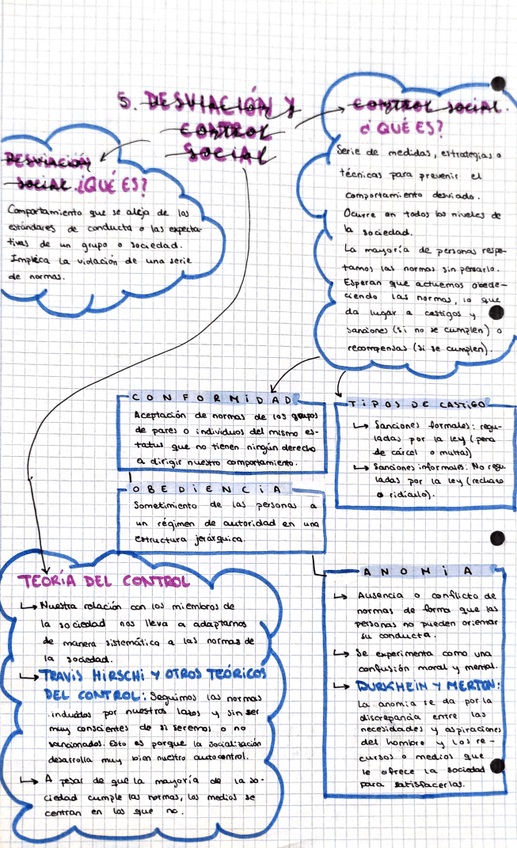 5. DESVIACIÓN Y
CONTROL
SOCIAL
DESVIACIÓN
SOCIAL ¿QUÉ ES?
Comportamiento que se aleja de los
estándares de conducta o las expecta-
tivas de un grupo o sociedad.
Implica la violación de una serie
de normas.
CONTROL SOCIAL.
¿QUÉ ES?
Serie de medidas, estrategias o
técnicas para prevenir el
comportamiento desviado.
Ocurre en todos los niveles de
la sociedad.
La mayoría de personas respe-
tamos las normas sin pensarlo.
Esperan que actuemos obede-
ciendo las normas, lo que
da lugar a castigos y
sanciones (si no se cumplen) o
recompensas (si se cumplen).
CONFORMIDAD
Aceptación de normas de los grupos
de pares o individuos del mismo es-
tatus que no tienen ningún derecho
a dirigir nuestro comportamiento.
TIPOS DE CASTIGO
Sanciones formales: regu-
ladas por la ley (pena
de cárcel o multas)
Sanciones informales: No regu
ladas por la ley (rechazo
o ridículo).
OBEDIENCIA
Sometimiento de las personas a
un régimen de autoridad en una
estructura jerárquica.
TEORÍA DEL CONTROL
Nuestra relación con los miembros de
la sociedad nos lleva a adaptarnos
de manera sistemática a las normas de
la sociedad.
TRAVIS HIRSCHI Y OTROS TEÓRICOS
DEL CONTROL: Seguimos las normas
inducidos por nuestros lazos y sin ser
muy conscientes de si seremos o no
sancionados. Esto es porque la socialización
desarrolla muy bien nuestro autocontrol.
A pesar de que la mayoría de la so-
ciedad cumple las normas, los medios se
centran en los que no.
ANOMIA
Ausencia o conflicto de
normas de forma que las
personas no pueden orientar
su conducta.
Se experimenta como una
confusión moral y mental.
DURKHEIN Y MERTON:
La anomia se da por la
discrepancia entre las
necesidades y aspiraciones
del hombre y los re-
cursos o medios que
le ofrece la sociedad
para satisfacerlas.